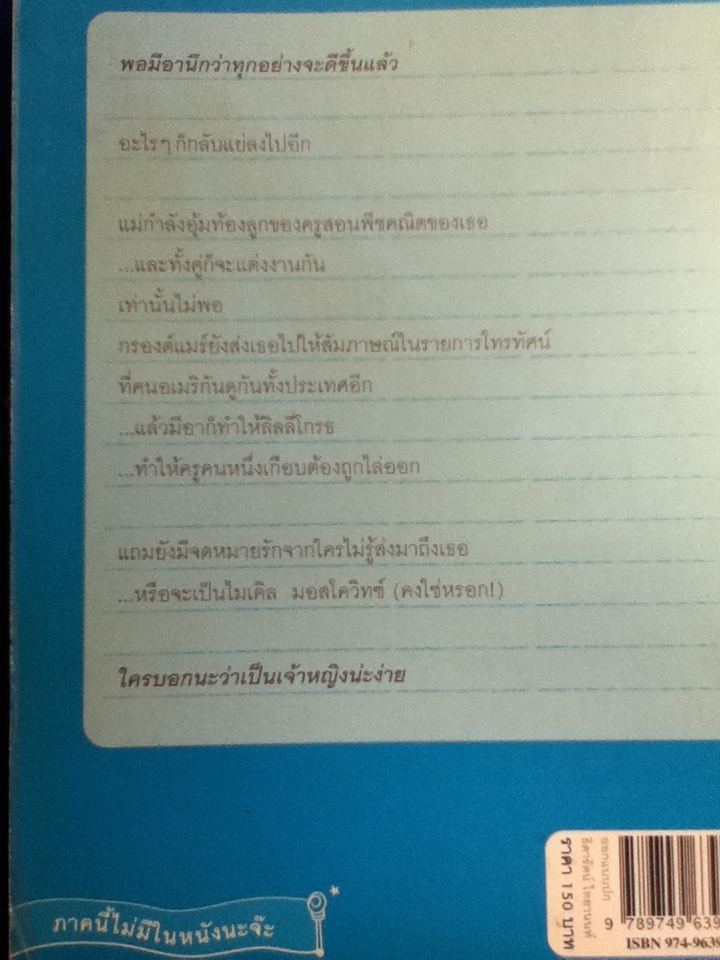 พอมีอานึกว่าทุกอย่างจะดีขึ้นแล้ว
อะไรๆ ก็กลับแย่ลงไปอีก
แม่กำลังอุ้มท้องลูกของครูสอนพีชคณิตของเธอ
...และทั้งคู่ก็จะแต่งงานกัน
เท่านั้นไม่พอ
กรองด์แมร์ยังส่งเธอไปให้สัมภาษณ์ในรายการโทรทัศน์
ที่คนอเมริกันดูกันทั้งประเทศอีก
...แล้วมีอาก็ทำให้ลิลลี่โกรธ
...ทำให้ครูคนหนึ่งเกือบต้องถูกไล่ออก
แถมยังมีจดหมายรักจากใครไม่รู้ส่งมาถึงเธอ
...หรือจะเป็นไมเคิล มอสโควิทซ์ (คงใช่หรอก!)
ใครบอกนะว่าเป็นเจ้าหญิงน่ะง่าย
ภาคนี้ไม่มีในหนังนะจ๊ะ
ออกแบบปก
ราคา 150 บาท
9 789749 639
ISBN 974-9639